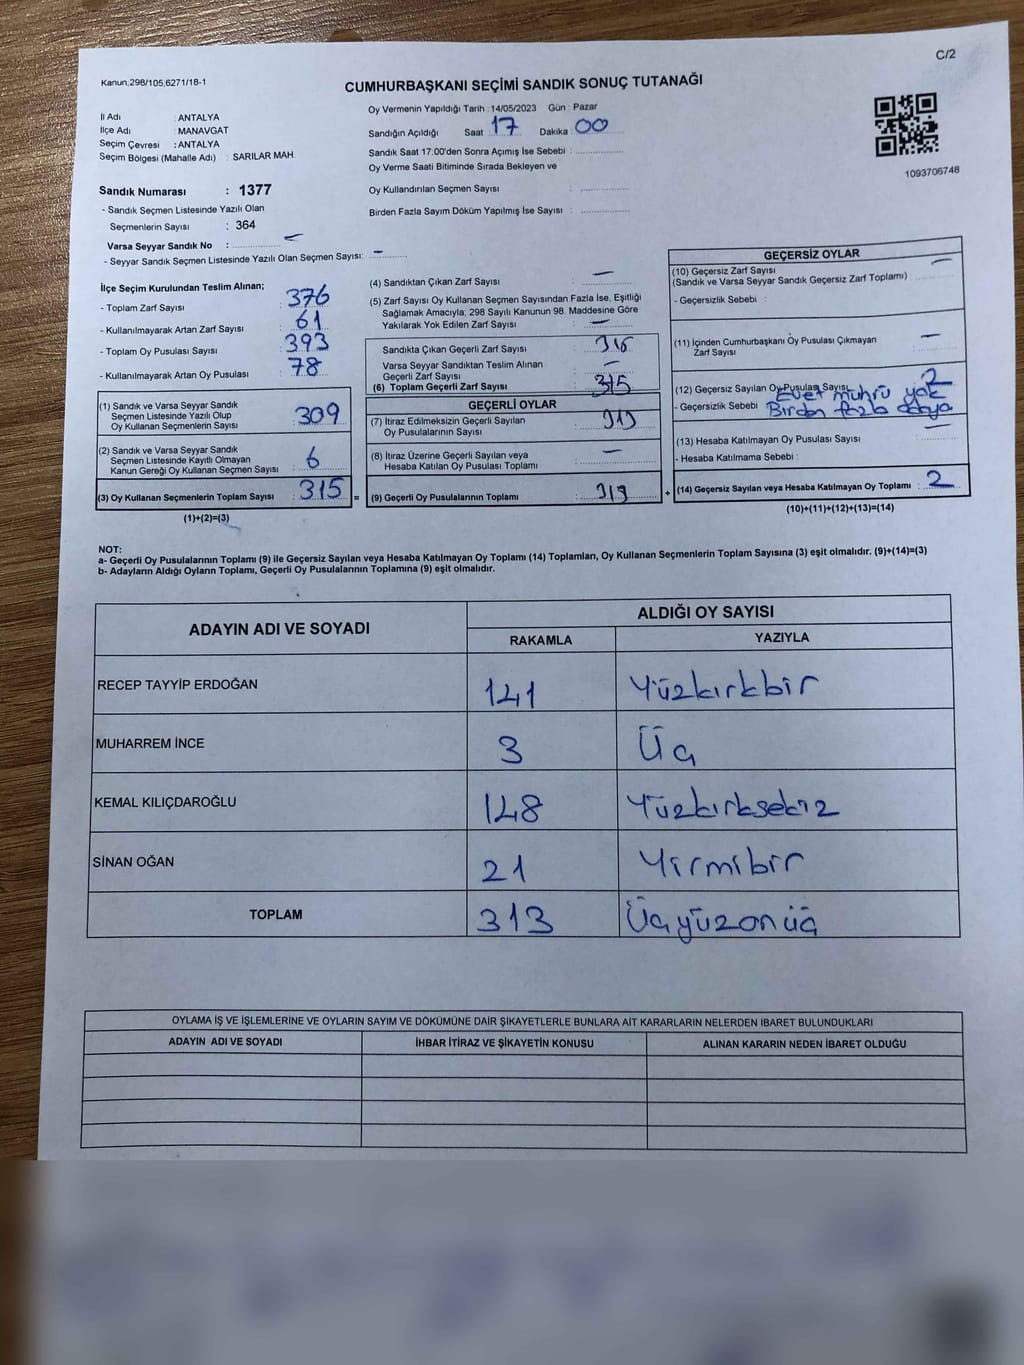 C/2
Kanun,298/105,6271/18-1
CUMHURBAŞKANI SEÇİMİ SANDIK SONUÇ TUTANAĞI
İl Adı : ANTALYA
İlçe Adı : MANAVGAT
Seçim Çevresi : ANTALYA
Seçim Bölgesi (Mahalle Adı) : SARILAR MAH.
Sandık Numarası : 1377
- Sandık Seçmen Listesinde Yazılı Olan
Seçmenlerin Sayısı : 364
Varsa Seyyar Sandık No : –
- Seyyar Sandık Seçmen Listesinde Yazılı Olan Seçmen Sayısı: –
Oy Vermenin Yapıldığı Tarih : 14/05/2023 Gün : Pazar
Sandığın Açıldığı Saat 17 Dakika 00
Sandık Saat 17:00'den Sonra Açımış İse Sebebi :
Oy Verme Saati Bitiminde Sırada Bekleyen ve
Oy Kullandırılan Seçmen Sayısı :
Birden Fazla Sayım Döküm Yapılmış İse Sayısı :
1093706748
İlçe Seçim Kurulundan Teslim Alınan;
- Toplam Zarf Sayısı : 376
- Kullanılmayarak Artan Zarf Sayısı : 61
- Toplam Oy Pusulası Sayısı : 393
- Kullanılmayarak Artan Oy Pusulası : 78
(1) Sandık ve Varsa Seyyar Sandık
Seçmen Listesinde Yazılı Olup
Oy Kullanan Seçmenlerin Sayısı : 309
(2) Sandık ve Varsa Seyyar Sandık
Seçmen Listesinde Kayıtlı Olmayan
Kanun Gereği Oy Kullanan Seçmen Sayısı : 6
(3) Oy Kullanan Seçmenlerin Toplam Sayısı : 315 =
(1)+(2)=(3)
(4) Sandıktan Çıkan Zarf Sayısı : –
(5) Zarf Sayısı Oy Kullanan Seçmen Sayısından Fazla İse, Eşitliği
Sağlamak Amacıyla; 298 Sayılı Kanunun 98. Maddesine Göre
Yakılarak Yok Edilen Zarf Sayısı : –
Sandıkta Çıkan Geçerli Zarf Sayısı :
Varsa Seyyar Sandıktan Teslim Alınan
Geçerli Zarf Sayısı : –
(6) Toplam Geçerli Zarf Sayısı : 315
GEÇERLİ OYLAR
(7) İtiraz Edilmeksizin Geçerli Sayılan
Oy Pusulalarının Sayısı : 313
(8) İtiraz Üzerine Geçerli Sayılan veya
Hesaba Katılan Oy Pusulası Toplamı : –
(9) Geçerli Oy Pusulalarının Toplamı : 313 +
GEÇERSİZ OYLAR
(10) Geçersiz Zarf Sayısı
(Sandık ve Varsa Seyyar Sandık Geçersiz Zarf Toplamı) : –
- Geçersizlik Sebebi :
(11) İçinden Cumhurbaşkanı Oy Pusulası Çıkmayan
Zarf Sayısı : –
(12) Geçersiz Sayılan Oy Pusulası Sayısı : 2
- Geçersizlik Sebebi Evet mührü yok
Birden fazla adaya
(13) Hesaba Katılmayan Oy Pusulası Sayısı : –
- Hesaba Katılmama Sebebi :
(14) Geçersiz Sayılan veya Hesaba Katılmayan Oy Toplamı : 2
(10)+(11)+(12)+(13)=(14)
NOT:
a- Geçerli Oy Pusulalarının Toplamı (9) ile Geçersiz Sayılan veya Hesaba Katılmayan Oy Toplamı (14) Toplamları, Oy Kullanan Seçmenlerin Toplam Sayısına (3) eşit olmalıdır. (9)+(14)=(3)
b- Adayların Aldığı Oyların Toplamı, Geçerli Oy Pusulalarının Toplamına (9) eşit olmalıdır.
ADAYIN ADI VE SOYADI
ALDIĞI OY SAYISI
RAKAMLA YAZIYLA
RECEP TAYYİP ERDOĞAN 141 Yüzkırkbir
MUHARREM İNCE 3 Üç
KEMAL KILIÇDAROĞLU 148 Yüzkırksekiz
SİNAN OĞAN 21 Yirmibir
TOPLAM 313 Üçyüzonüç
OYLAMA İŞ VE İŞLEMLERİNE VE OYLARIN SAYIM VE DÖKÜMÜNE DAİR ŞİKAYETLERLE BUNLARA AİT KARARLARIN NELERDEN İBARET BULUNDUKLARI
ADAYIN ADI VE SOYADI İHBAR İTİRAZ VE ŞİKAYETİN KONUSU ALINAN KARARIN NEDEN İBARET OLDUĞU